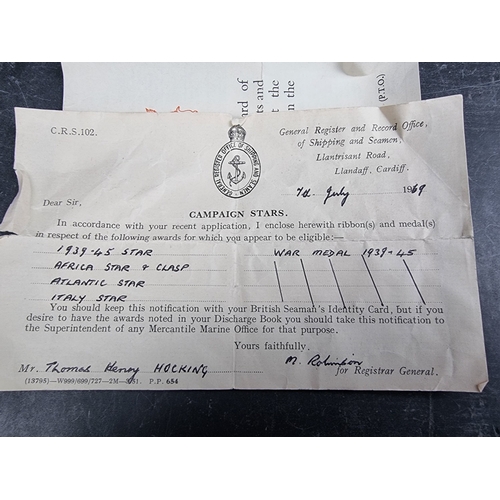 ard of
ts and
t the
n the
(P.T.O.)
C.R.S.102.
GENERAL REGISTER OFFICE OF SHIPPING AND SEAMEN
General Register and Record Office,
of Shipping and Seamen,
Llantrisant Road,
Llandaff, Cardiff.
July 1969
Dear Sir,
CAMPAIGN STARS.
In accordance with your recent application, I enclose herewith ribbon(s) and medal(s)
in respect of the following awards for which you appear to be eligible:—
1939-45 STAR WAR MEDAL 1939-45
AFRICA STAR & CLASP
ATLANTIC STAR
ITALY STAR
You should keep this notification with your British Seaman's Identity Card, but if you
desire to have the awards noted in your Discharge Book you should take this notification to
the Superintendent of any Mercantile Marine Office for that purpose.
Yours faithfully,
M. Robinson
Mr. Thomas Henry HOCKING for Registrar General.
(13795)—W999/699/727—2M—3/51. P.P. 654